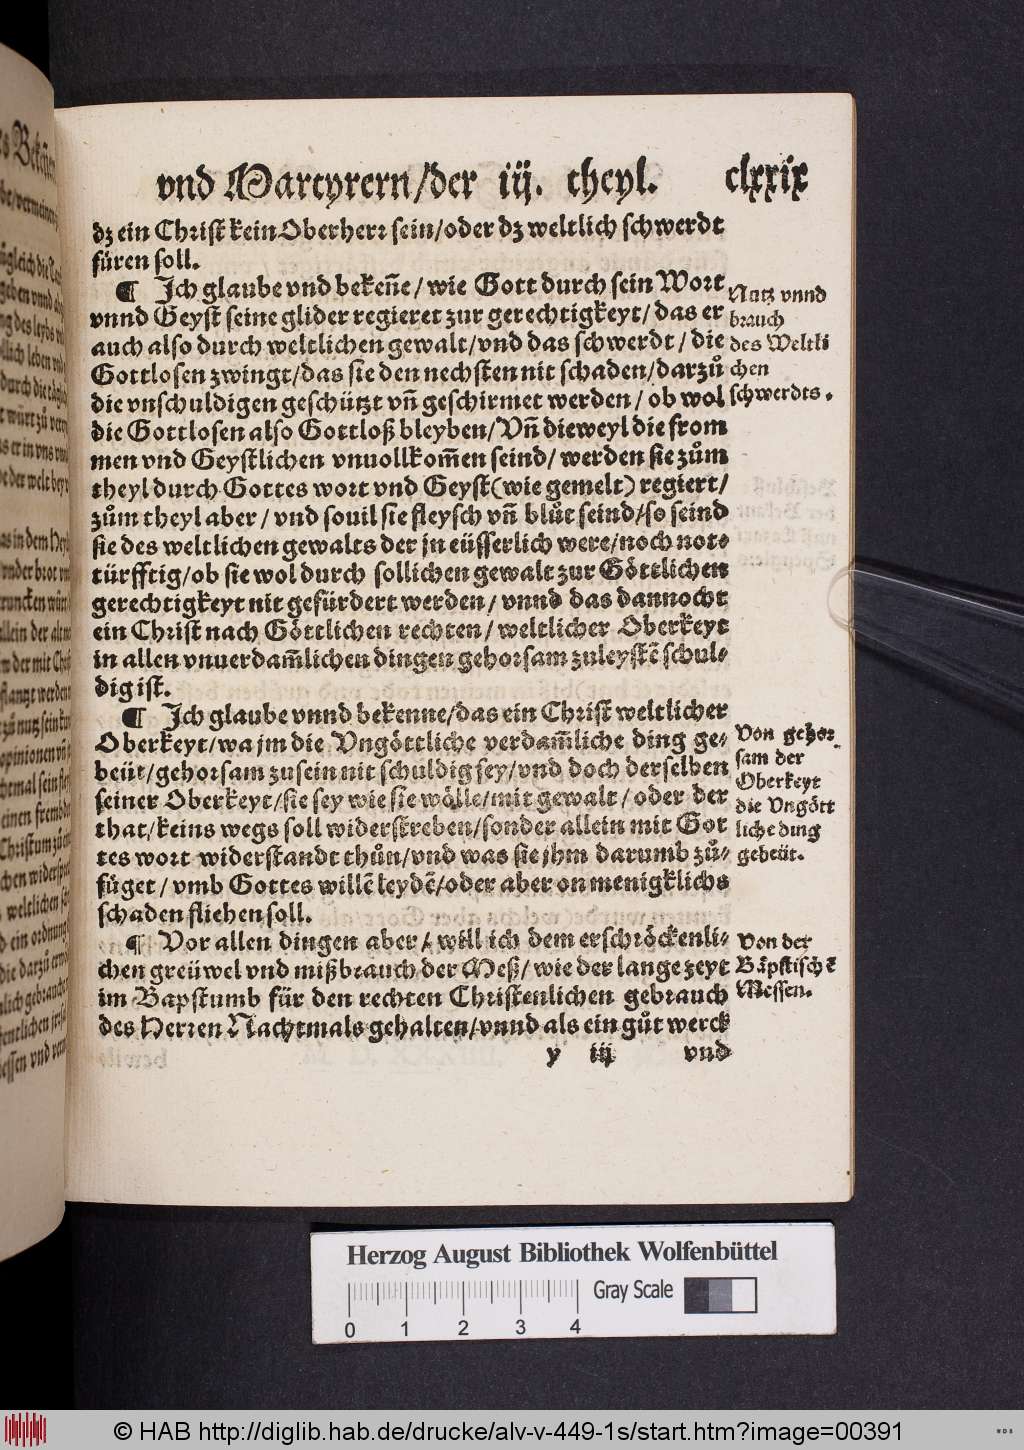 vnd Martyrern/der iij. theyl. clxxix
dz ein Christ kein Oberherr sein/oder dz weltlich schwerdt
füren soll.
¶ Ich glaube vnd bekeñe/wie Gott durch sein Wort
vnnd Geyst seine glider regieret zur gerechtigkeyt/das er
auch also durch weltlichen gewalt/vnd das schwerdt/die
Gottlosen zwingt/das sie den nechsten nit schaden/darzuͦ
die vnschuldigen geschützt vñ geschirmet werden/ob wol
die Gottlosen also Gottloß bleyben/Vñ dieweyl die from
men vnd Geystlichen vnuollkom̃en seind/werden sie zuͦm
theyl durch Gottes wort vnd Geyst(wie gemelt)regiert/
zuͦm theyl aber/vnd souil sie fleysch vñ bluͦt seind/so seind
sie des weltlichen gewalts der jn eüsserlich were/noch not-
türfftig/ob sie wol durch sollichen gewalt zur Göttlichen
gerechtigkeyt nit gefürdert werden/vnnd das dannocht
ein Christ nach Göttlichen rechten/weltlicher Oberkeyt
in allen vnuerdam̃lichen dingen gehorsam zuleystẽ schul-
dig ist.
Nutz vnnd
brauch
des Weltli
chen
schwerdts.
¶ Ich glaube vnnd bekenne/das ein Christ weltlicher
Oberkeyt/wa jm die Vngöttliche verdam̃liche ding ge-
beüt/gehorsam zusein nit schuldig sey/vnd doch derselben
seiner Oberkeyt/sie sey wie sie wölle/mit gewalt/oder der
that/keins wegs soll widerstreben/sonder allein mit Got
tes wort widerstandt thuͦn/vnd was sie jhm darumb zuͦ-
füget/vmb Gottes willẽ leydẽ/oder aber on menigklichs
schaden fliehen soll.
Von gehor
sam der
Oberkeyt
die Vngött
liche ding
gebeüt.
¶ Vor allen dingen aber/will ich dem erschröckenli-
chen greüwel vnd mißbrauch der Meß/wie der lange zeyt
im Bapstumb für den rechten Christenlichen gebrauch
des Herren Nachtmals gehalten/vnnd als ein guͦt werck
Von der
Bäpstischẽ
Messen.
y iij vnd
Herzog August Bibliothek Wolfenbüttel
Gray Scale
0 1 2 3 4
© HAB http://diglib.hab.de/drucke/alv-v-449-1s/start.htm?image=00391